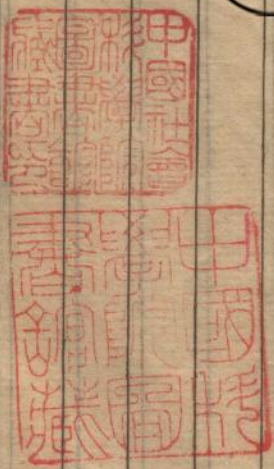 中國社會
科學院
圖書館
藏書印
中國科
學院圖
書館藏